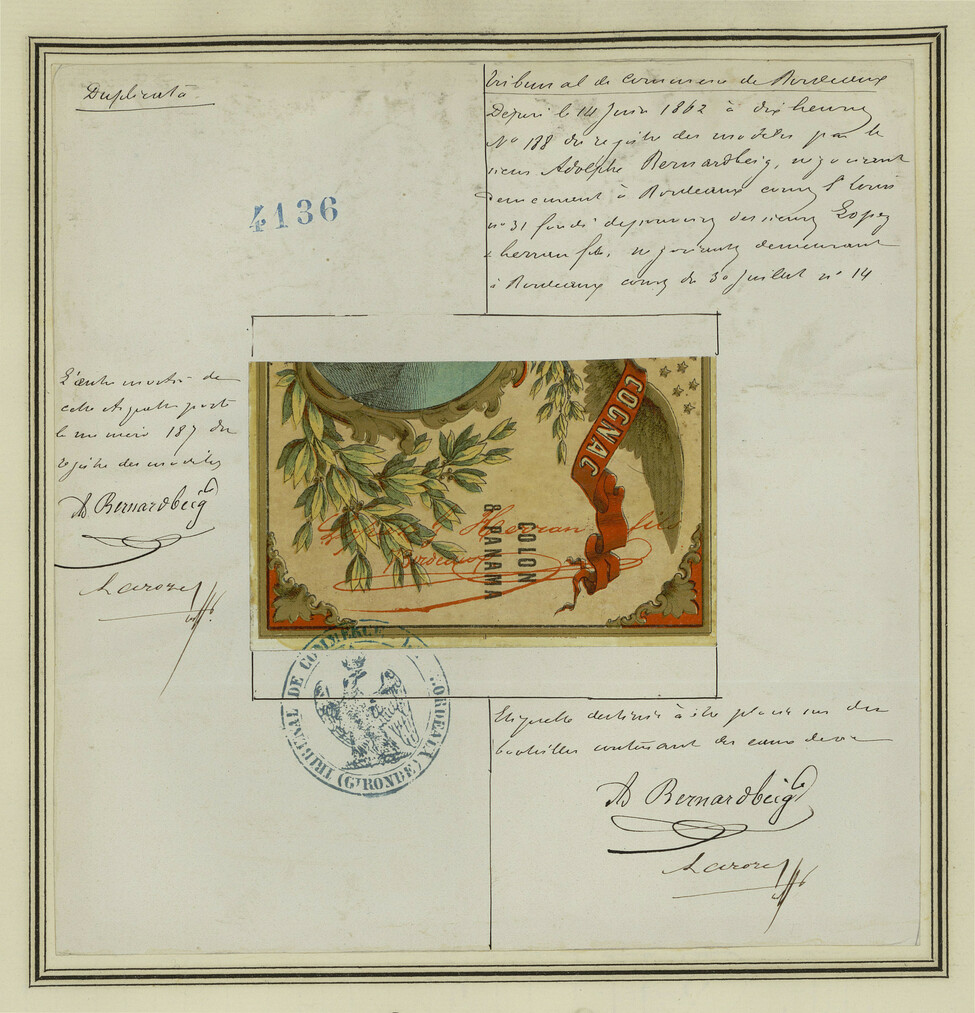 Duplicata
4136
Tribunal de commerce de Bordeaux
Déposé le 14 Juin 1862 à dix heures
No 188 du registre des modèles par le
sieur Adolphe Bernardbeig, négociant
demeurant à Bordeaux cours St Louis
no 31 fondé de pouvoirs des sieurs Lopez
& herran fils, négociants demeurant
à Bordeaux cours du 30 Juillet no 14
L'autre moitié de
cette étiquette porte
le numéro 187 du
registre des modèles
Ad Bernardbeig
Laroze
COGNAC
Lopez & Herran fils
Bordeaux
COLON
& PANAMA
TRIBUNAL DE COMMERCE DE BORDEAUX
(GIRONDE)
Etiquette destinée à être placée sur des
bouteilles contenant des eaux de vie
Ad Bernardbeig
Laroze